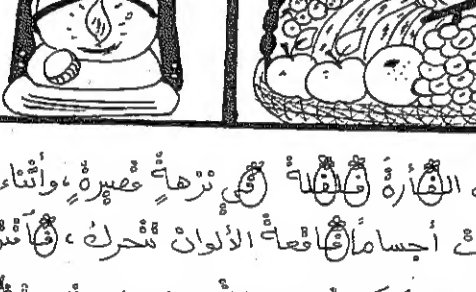 الفأرةُ فلفلة في نزهةٍ قصيرةٍ ، وأثناء
أجساماً فاقعةَ الألوان تتحركُ ،